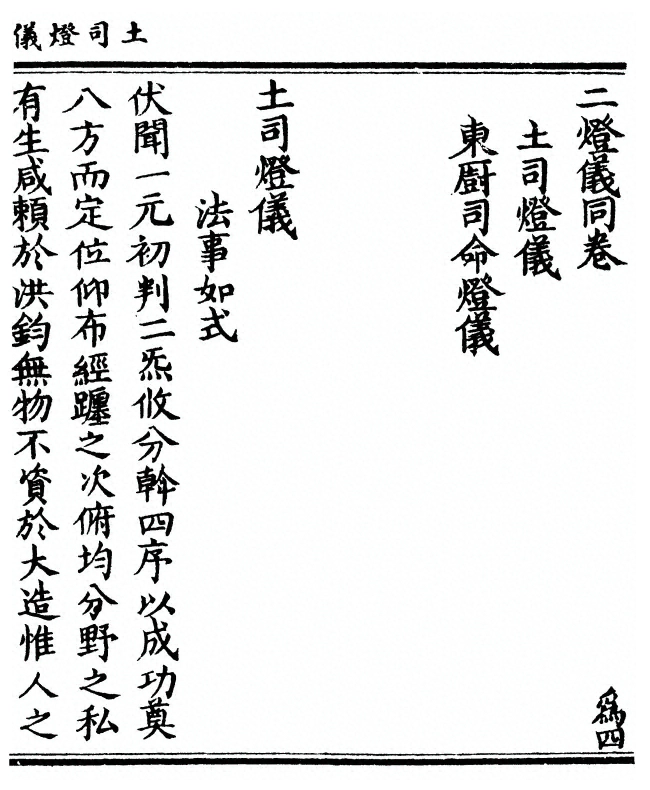 土司燈儀
二燈儀同卷
為四
土司燈儀
東厨司命燈儀
土司燈儀
法事如式
伏聞一元初判二炁攸分斡四序以成功奠
八方而定位仰布經躔之次俯均分野之私
有生咸頼於洪鈞無物不資於大造惟人之